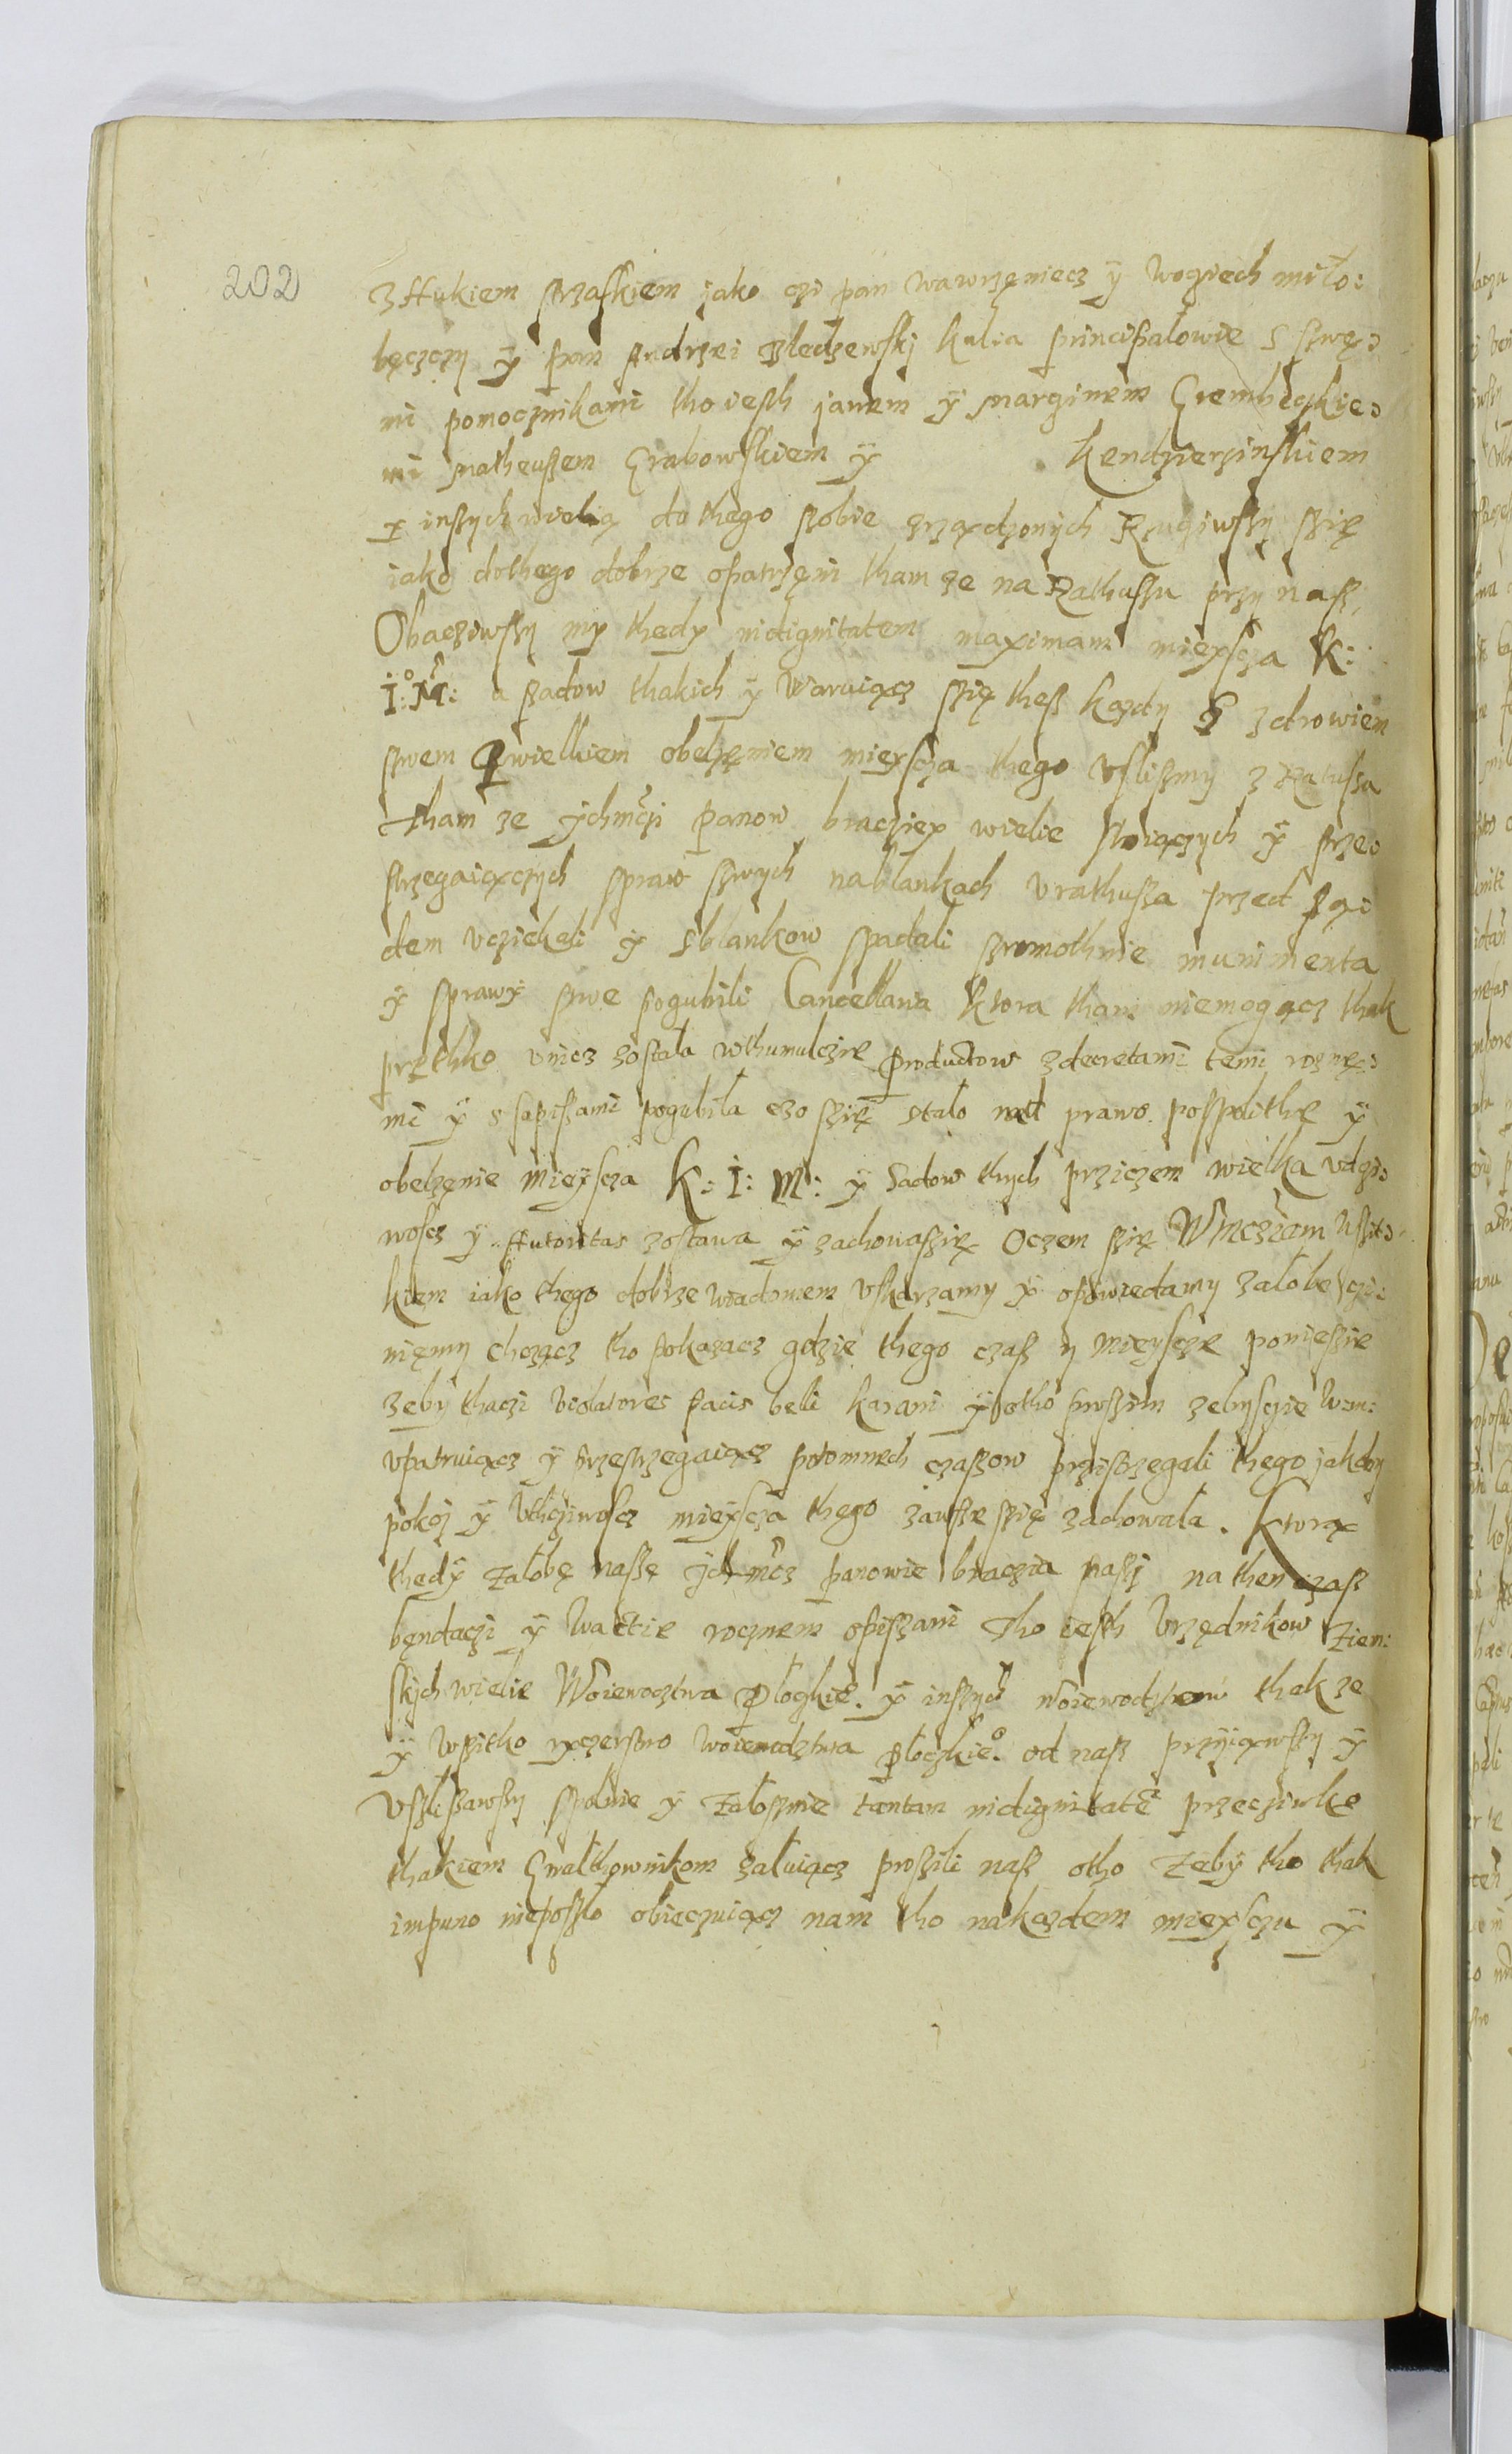 202
z Hukiem strzaskiem jako czi pan wawrzęniecz ÿ wogiech miło:
bęczczy ÿ pan Andrzei Bledzewskj kulia principalowie s szwę:
mi pomocznikami tho iesth janem ÿ marginem Grembeczkie:
mi matheuszem Grabowskiem ÿ Kendzierzinskiem
y inszych wielią do thego szobie zrządzonych Rzuciwszy szię
iako do thego dobrze opatrzęni tham ze na Rathuszu przy nasz,
Obacziwszy my thedy indignitatem maximam miejscza K:
I:M: a szadow thakich ÿ Waruiącz szię thesz kazdy S zdrowiem
szwem S wielkiem obelzęniem miejscza thego vslismy z Ratusza
Tham ze ychmczi panow bracziey wielie stoiączych ÿ prze:
strzegaiączych spraw szwych na blankach v rathusza przed Szą:
dem vcziekali ÿ s blankow spadali szromothnie munimenta
ÿ sprawy swe pogubili Cancellaria Ktora tham niemogącz thak
prżthko vnicz zostala w thumulczie productow z decretami temi roznę:
mi ÿ s sapiszami pogubila czo szię stalo nad prawo pospolithe ÿ
obelzęnie Mieyscza K: I: M: ÿ Sadow thych przi czem wielka vczi:
woscz ÿ Autoritas zostawa ÿ zachowa szię Oczem szię Wmcziam Wszit:
kiem iako thego dobrze wiadomem vskarzamy ÿ opowiedamy załobe czi:
nięmy chcącz tho pokazacz gdzie thego czasz y Mieyscze poniesie
zeby thaczi violatores pacis beli karani ÿ otho proszim zebyscie Wm:
vpatruiącz ÿ przestrzegaiącz potomnech czaszow przestrzegali thego jakoby
pokoj ÿ Vthcziwoscz mieyscza thego zawsze szię zachowała. Ktorą
thedÿ Załobę nasze jchmcz panowie braczia naszj na then czasz
będaczi ÿ W akcie rocznem opiszani Tho iesth Vrzędnikow Ziem:
skjch wielie Woiewocztwa Płogkie. ÿ inszych woiewodztwow thak ze
ÿ wszitko ryczerstwo woiewodztwa płoczkieo. od nasz przyiąwszy ÿ
Vszliszawszy spolnie ÿ Załosznie tantam indignitatē przecziwko
thakiem Gwalthownikom załuiącz prosili nasz otho Zeby tho thak
impuno nieposzło obieczuiącz nam tho na kazdem miejsczu ÿ